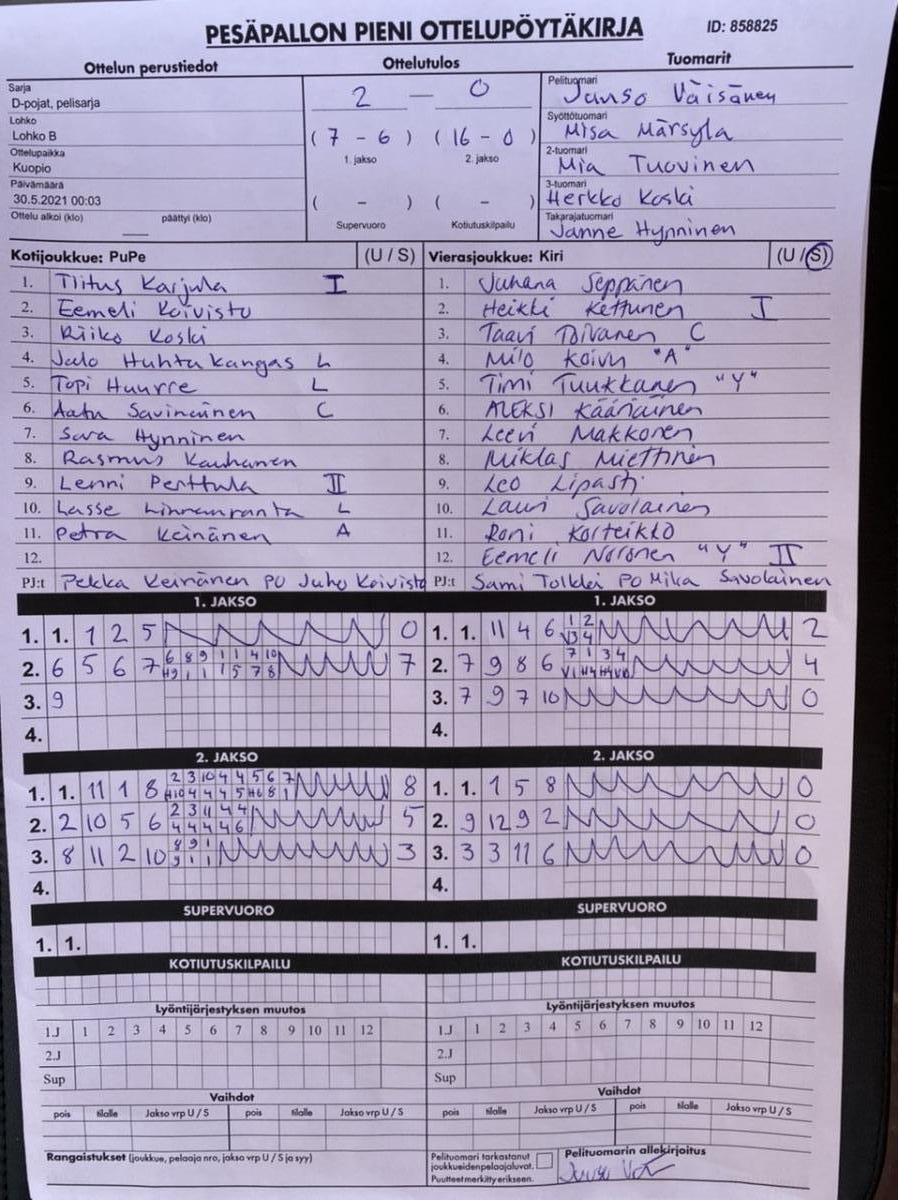 PESÄPALLON PIENI OTTELUPÖYTÄKIRJA
ID: 858825
Ottelun perustiedot
Sarja
D-pojat, pelisarja
Lohko
Lohko B
Ottelupaikka
Kuopio
Päivämäärä
30.5.2021 00:03
Ottelu alkoi (klo) päättyi (klo)
Ottelutulos
2 — 0
( 7 - 6 ) ( 16 - 0 )
1. jakso 2. jakso
( - ) ( - )
Supervuoro Kotiutuskilpailu
Tuomarit
Pelituomari
Juuso Väisänen
Syöttötuomari
Misa Märsylä
2-tuomari
Mia Tuovinen
3-tuomari
Herkko Koski
Takarajatuomari
Janne Hynninen
Kotijoukkue: PuPe (U / S)
1. Tiitus Karjula I
2. Eemeli Koivisto
3. Riiko Koski
4. Jalo Huhtakangas L
5. Topi Huurre L
6. Aatu Savinainen C
7. Sara Hynninen
8. Rasmus Kauhanen
9. Lenni Perttula II
10. Lasse Linnanranta L
11. Petra Keinänen A
12.
PJ:t Pekka Keinänen PO Juho Koivisto
Vierasjoukkue: Kiri (U / S)
1. Juhana Seppänen
2. Heikki Kettunen I
3. Taavi Toivanen C
4. Milo Koivu "A"
5. Timi Tuukkanen "Y"
6. ALEKSI Kääriäinen
7. Leevi Makkonen
8. Miklas Miettinen
9. Leo Lipasti
10. Lauri Savolainen
11. Roni Korteikko
12. Eemeli Noronen "Y" II
PJ:t Sami Tolkki PO Mika Savolainen
1. JAKSO
1. 1. 1 2 5 0
6 8 9 1 1 4 10
2. 6 5 6 7 H9 1 1 1 5 7 8 7
3. 9
4.
1. JAKSO
1 2
1. 1. 11 4 6 V3 4 2
7 1 3 4
2. 7 9 8 6 4
3. 7 9 7 10 0
4.
2. JAKSO
2 3 10 4 4 5 6 7
1. 1. 11 1 8 H10 4 4 4 5 H6 8 1 8
2 3 11 4 4
2. 2 10 5 6 4 4 4 4 6 5
8 9 1
3. 8 11 2 10 9 1 1 3
4.
2. JAKSO
1. 1. 1 5 8 0
2. 9 12 9 2 0
3. 3 3 11 6 0
4.
SUPERVUORO
1. 1.
SUPERVUORO
1. 1.
KOTIUTUSKILPAILU
KOTIUTUSKILPAILU
Lyöntijärjestyksen muutos
1.J 1 2 3 4 5 6 7 8 9 10 11 12
2.J
Sup
Lyöntijärjestyksen muutos
1.J 1 2 3 4 5 6 7 8 9 10 11 12
2.J
Sup
Vaihdot
pois tilalle Jakso vrp U / S pois tilalle Jakso vrp U / S
Vaihdot
pois tilalle Jakso vrp U / S pois tilalle Jakso vrp U / S
Rangaistukset (joukkue, pelaaja nro, jakso vrp U / S ja syy)
Pelituomari tarkastanut
joukkueidenpelaajaluvat.
Puutteet merkitty erikseen.
Pelituomarin allekirjoitus